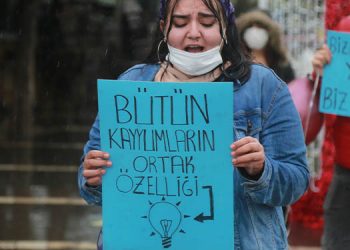 BÜTÜN
KAYYUMLARIN
ORTAK
ÖZELLİĞİ
BİZ